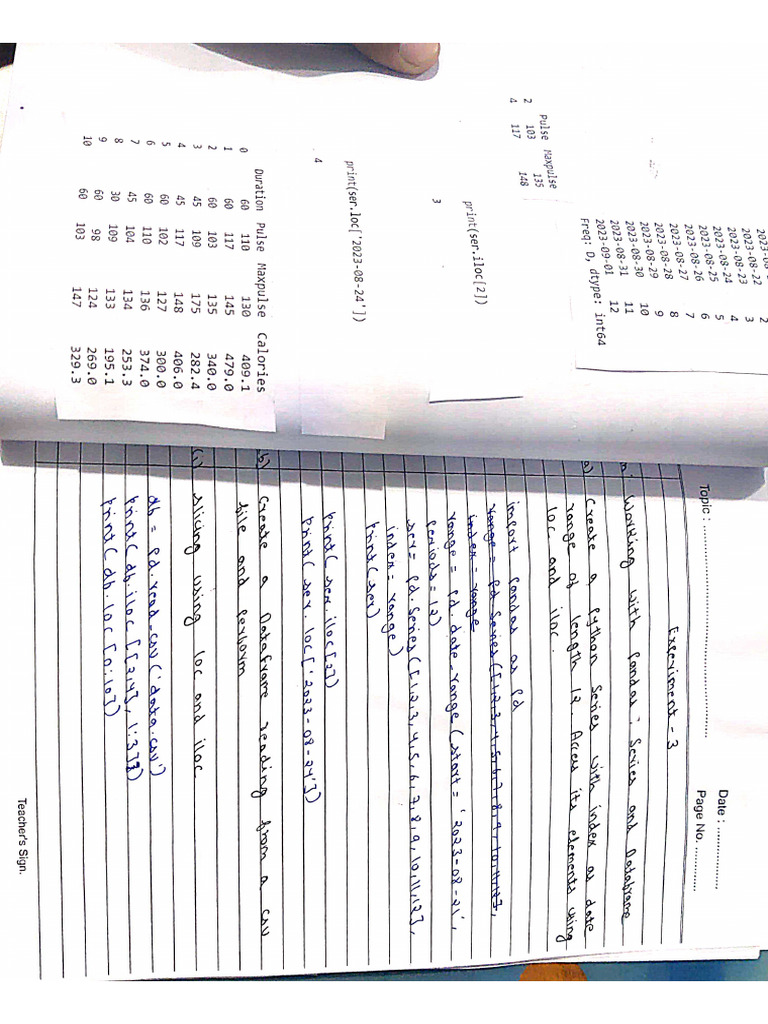 2023-08-22 3
2023-08-23 4
2023-08-24 5
2023-08-25 6
2023-08-26 7
2023-08-27 8
2023-08-28 9
2023-08-29 10
2023-08-30 11
2023-08-31 12
2023-09-01
Freq: D, dtype: int64
Pulse Maxpulse
2 103 135
4 117 148
print(ser.iloc[2])
3
print(ser.loc['2023-08-24'])
4
Duration Pulse Maxpulse Calories
0 60 110 130 409.1
1 60 117 145 479.0
2 60 103 135 340.0
3 45 109 175 282.4
4 45 117 148 406.0
5 60 102 127 300.0
6 60 110 136 374.0
7 45 104 134 253.3
8 30 109 133 195.1
9 60 98 124 269.0
10 60 103 147 329.3
Topic :
Date :
Page No.
Experiment - 3
Working with Pandas : Series and Dataframe
a) Create a Python Series with index as date
range of length 12. Access its elements using
loc and iloc.
import pandas as pd
range = pd.Series([1,2,3,4,5,6,7,8,9,10,11,12],
index = range
range = pd.date_range(start = '2023-08-21',
periods = 12)
ser = pd.Series([1,2,3,4,5,6,7,8,9,10,11,12],
index = range)
print(ser)
print(ser.iloc[2])
print(ser.loc['2023-08-24'])
b) Create a Dataframe reading from a csv
file and perform
(i) slicing using loc and iloc
df = pd.read_csv('data.csv')
print(df.iloc[[2,4], 1:3])
print(df.loc[0:10])
Teacher's Sign.